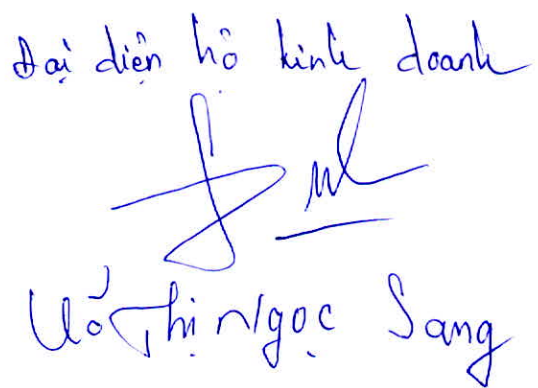 Đại diện hộ kinh doanh
Võ Thị Ngọc Sang